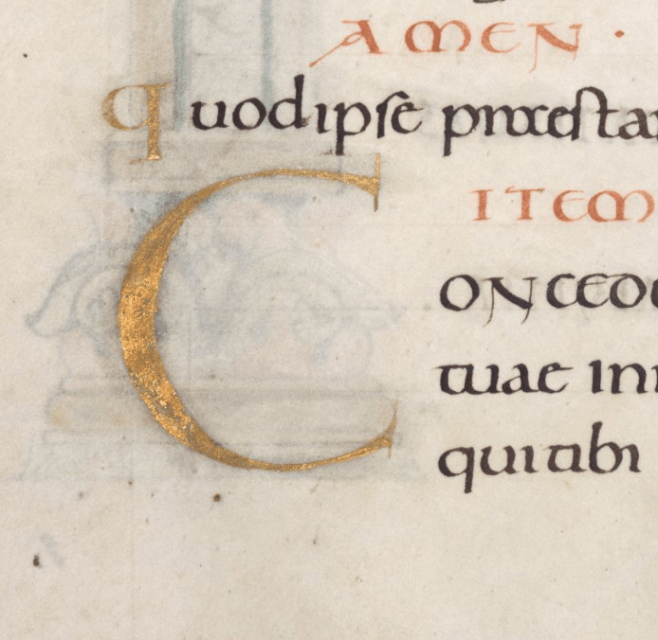 AMEN ·
quod ipse praesta
ITEM
CONCEDE
tuae in
qui tibi